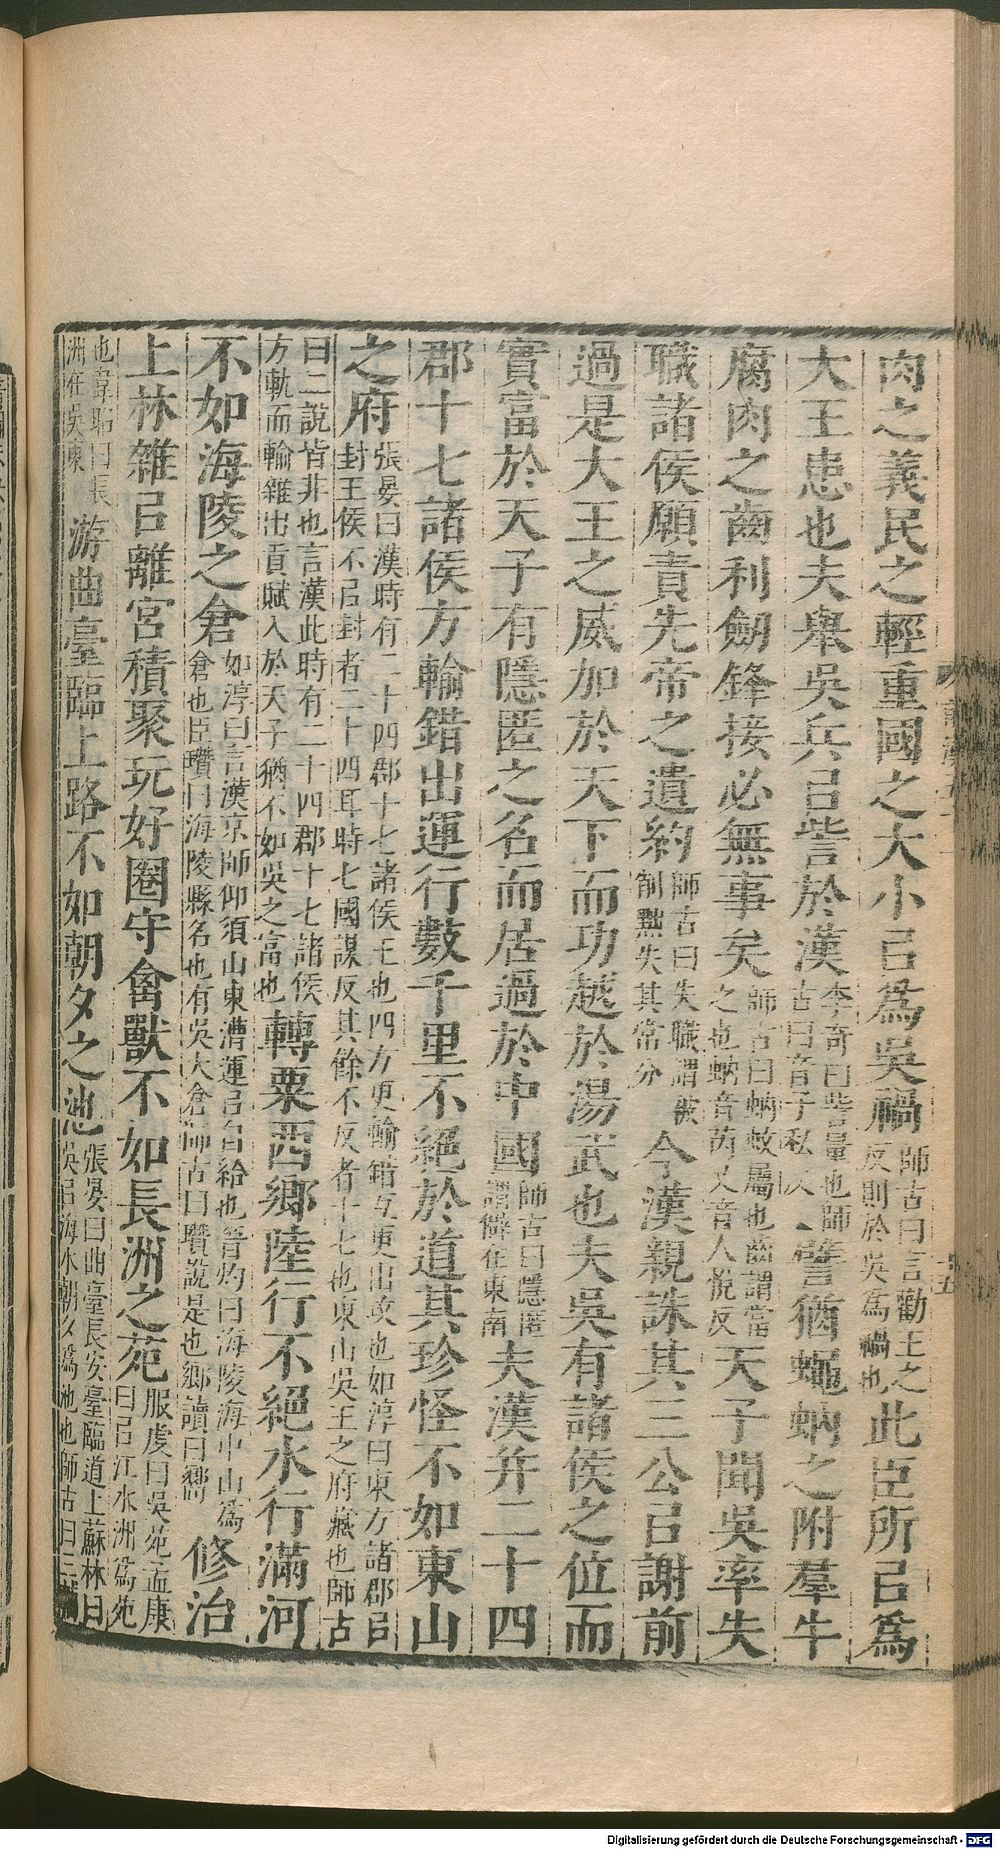 肉之義民之輕重國之大小㠯爲吳禍師古曰言勸王之反則於吳爲禍也此臣所㠯爲
大王患也夫舉吳兵㠯訾於漢李奇曰訾量也師古曰音子私反譬猶蠅蚋之附羣牛
腐肉之齒利劒鋒接必無事矣師古曰蚋蚊屬也齒謂當之也蚋音芮又音人悅反天子聞吳率失
職諸侯願責先帝之遺約師古曰失職謂被削黜失其常分今漢親誅其三公㠯謝前
過是大王之威加於天下而功越於湯武也夫吳有諸侯之位而
實富於天子有隱匿之名而居過於中國師古曰隱匿謂僻在東南夫漢并二十四
郡十七諸侯方輸錯出運行數千里不絕於道其珍怪不如東山
之府張晏曰漢時有二十四郡十七諸侯王也四方更輸錯互更出攻也如淳曰東方諸郡㠯封王侯不㠯封者二十四耳時七國謀反其餘不反者十七也東山吳王之府藏也師古
曰二說皆非也言漢此時有二十四郡十七諸侯方軌而輸雜出貢賦入於天子猶不如吳之富也轉粟西鄉陸行不絕水行滿河
不如海陵之倉如淳曰言漢京師仰須山東漕運㠯自給也晉灼曰海陵海中山爲倉也臣瓚曰海陵縣名也有吳大倉師古曰瓚說是也鄉讀曰嚮修治
上林雜㠯離宮積聚玩好圈守禽獸不如長洲之苑服虔曰吳苑孟康曰㠯江水洲爲苑
也韋昭曰長洲在吳東游曲臺臨上路不如朝夕之池張晏曰曲臺長安臺臨道上蘇林曰吳㠯海水朝夕爲池也師古曰三輔
Digitalisierung gefördert durch die Deutsche Forschungsgemeinschaft - DFG